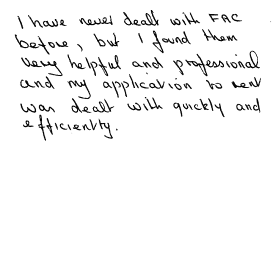 I have never dealt with FAC
before, but I found them
very helpful and professional
and my application to rent
was dealt with quickly and
efficiently.